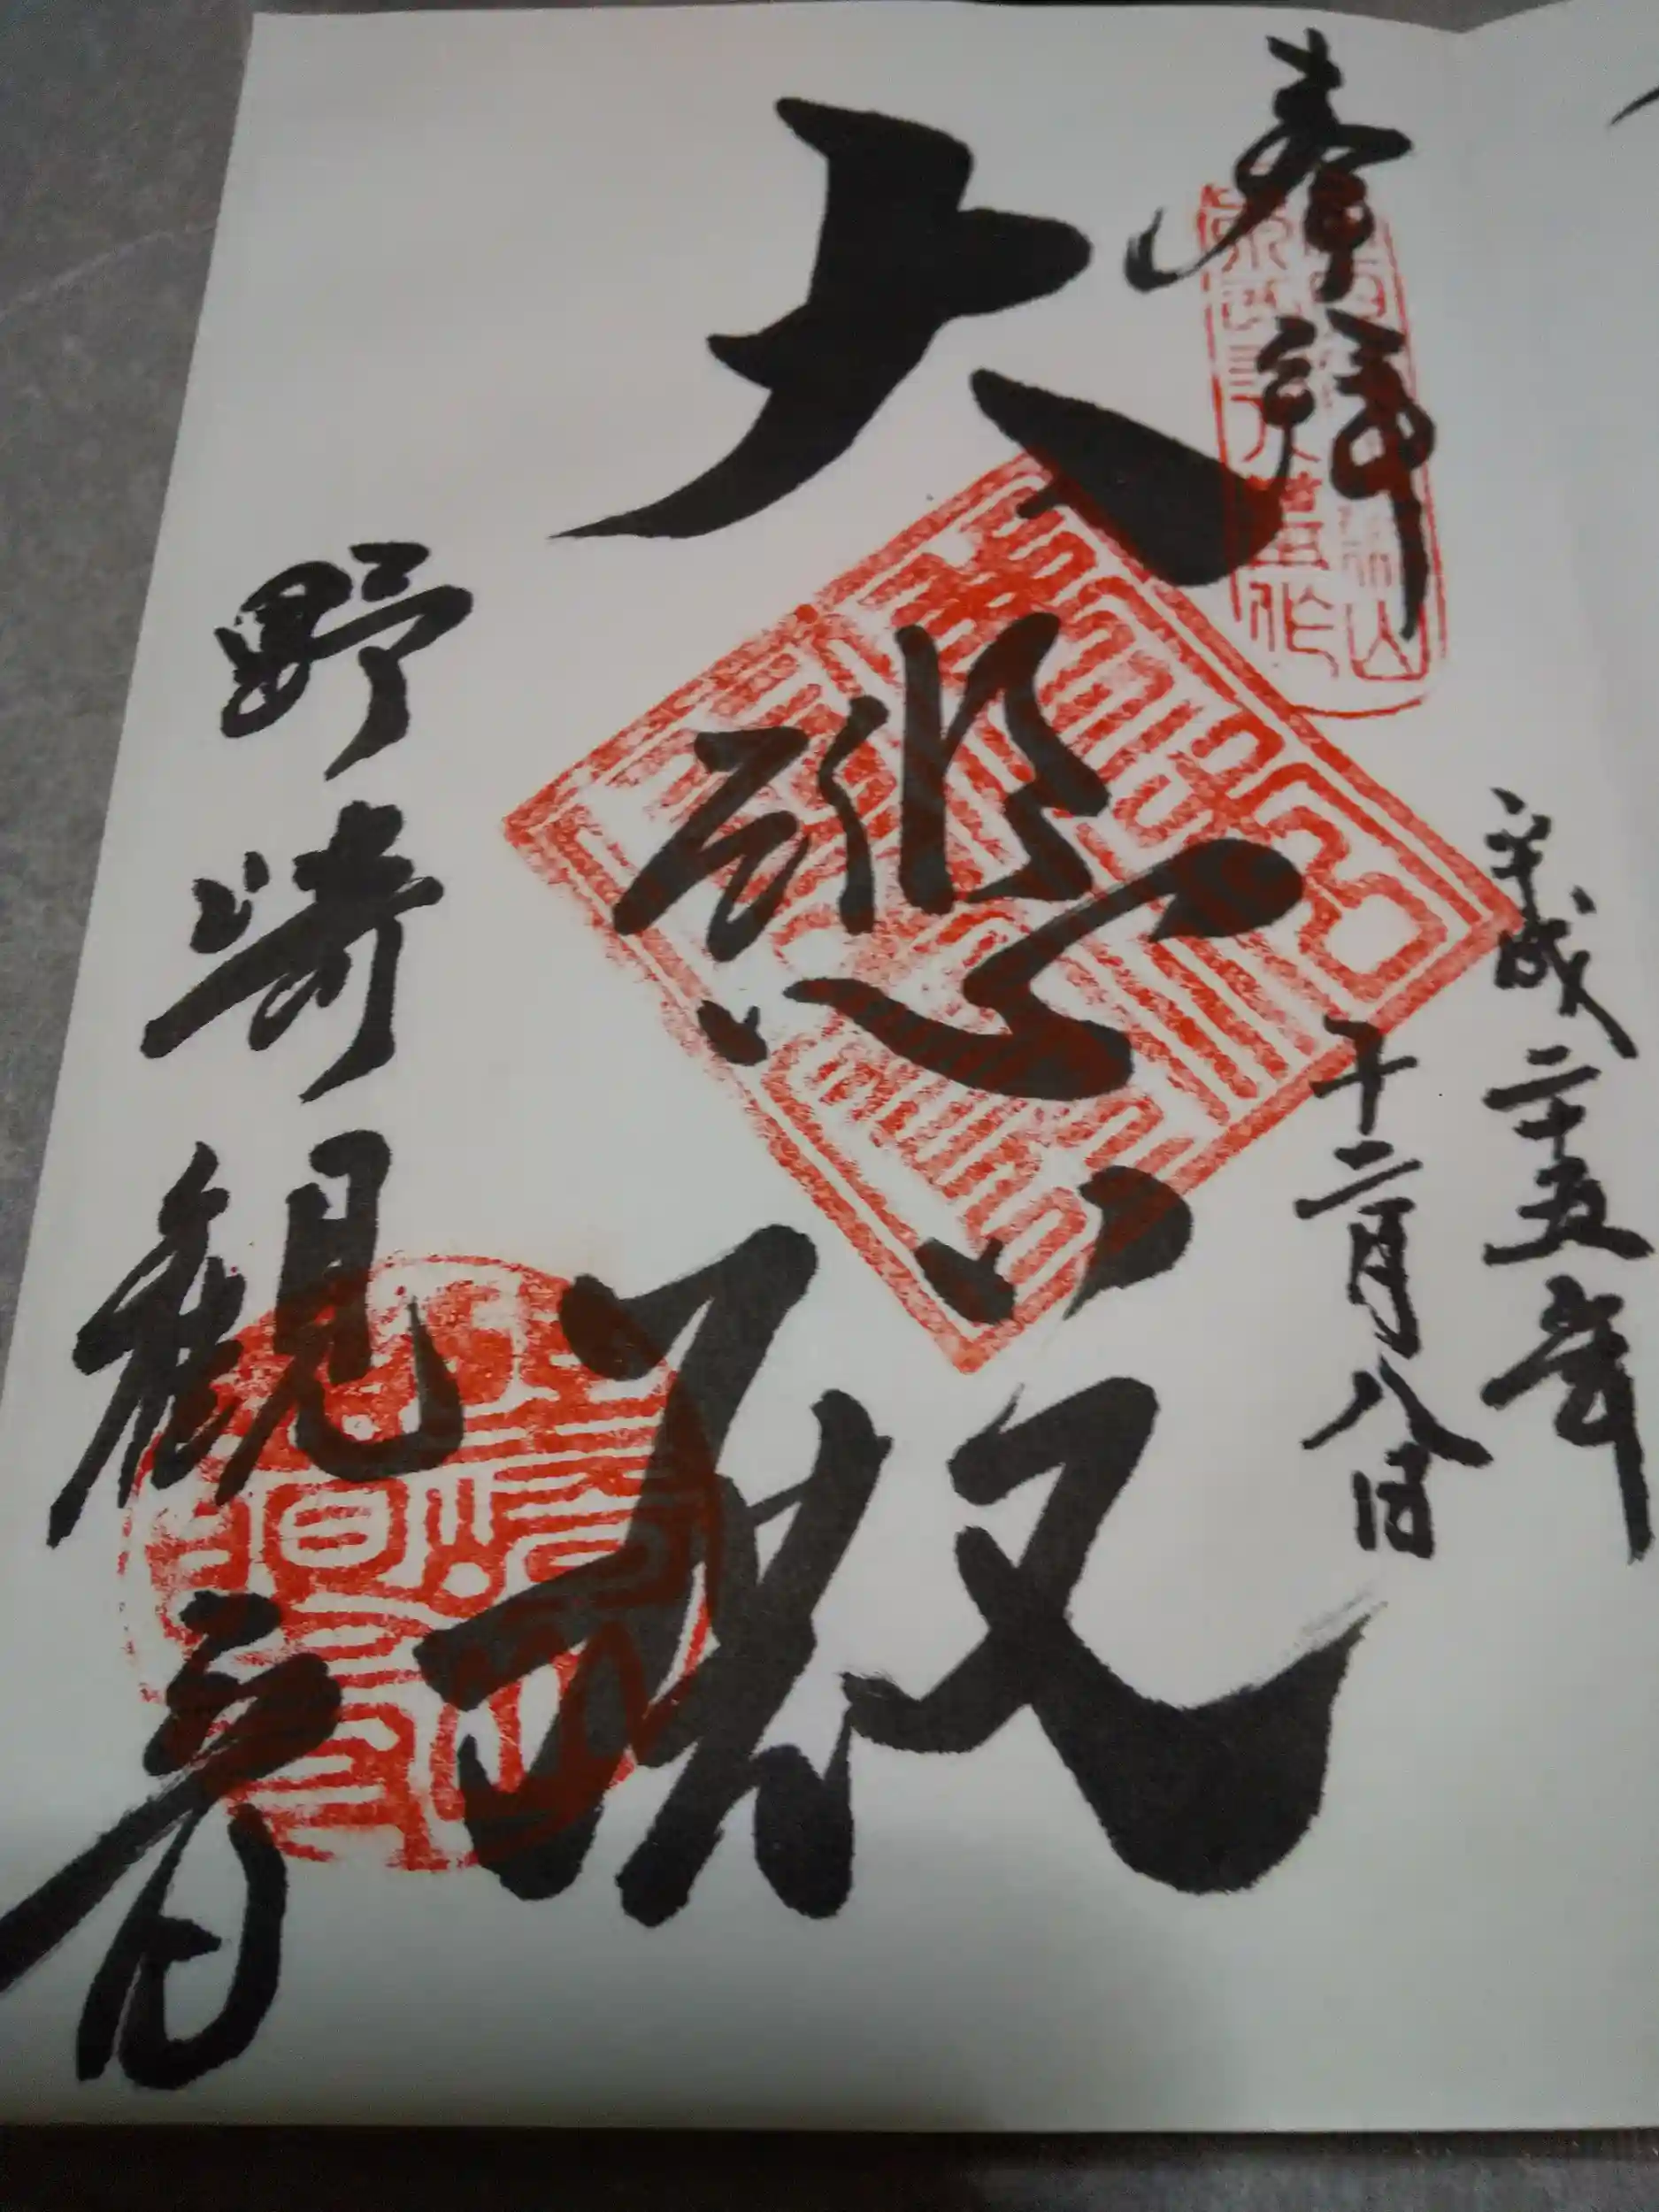 奉拝
平成二十五年
十二月八日
大悲殿
野崎観音